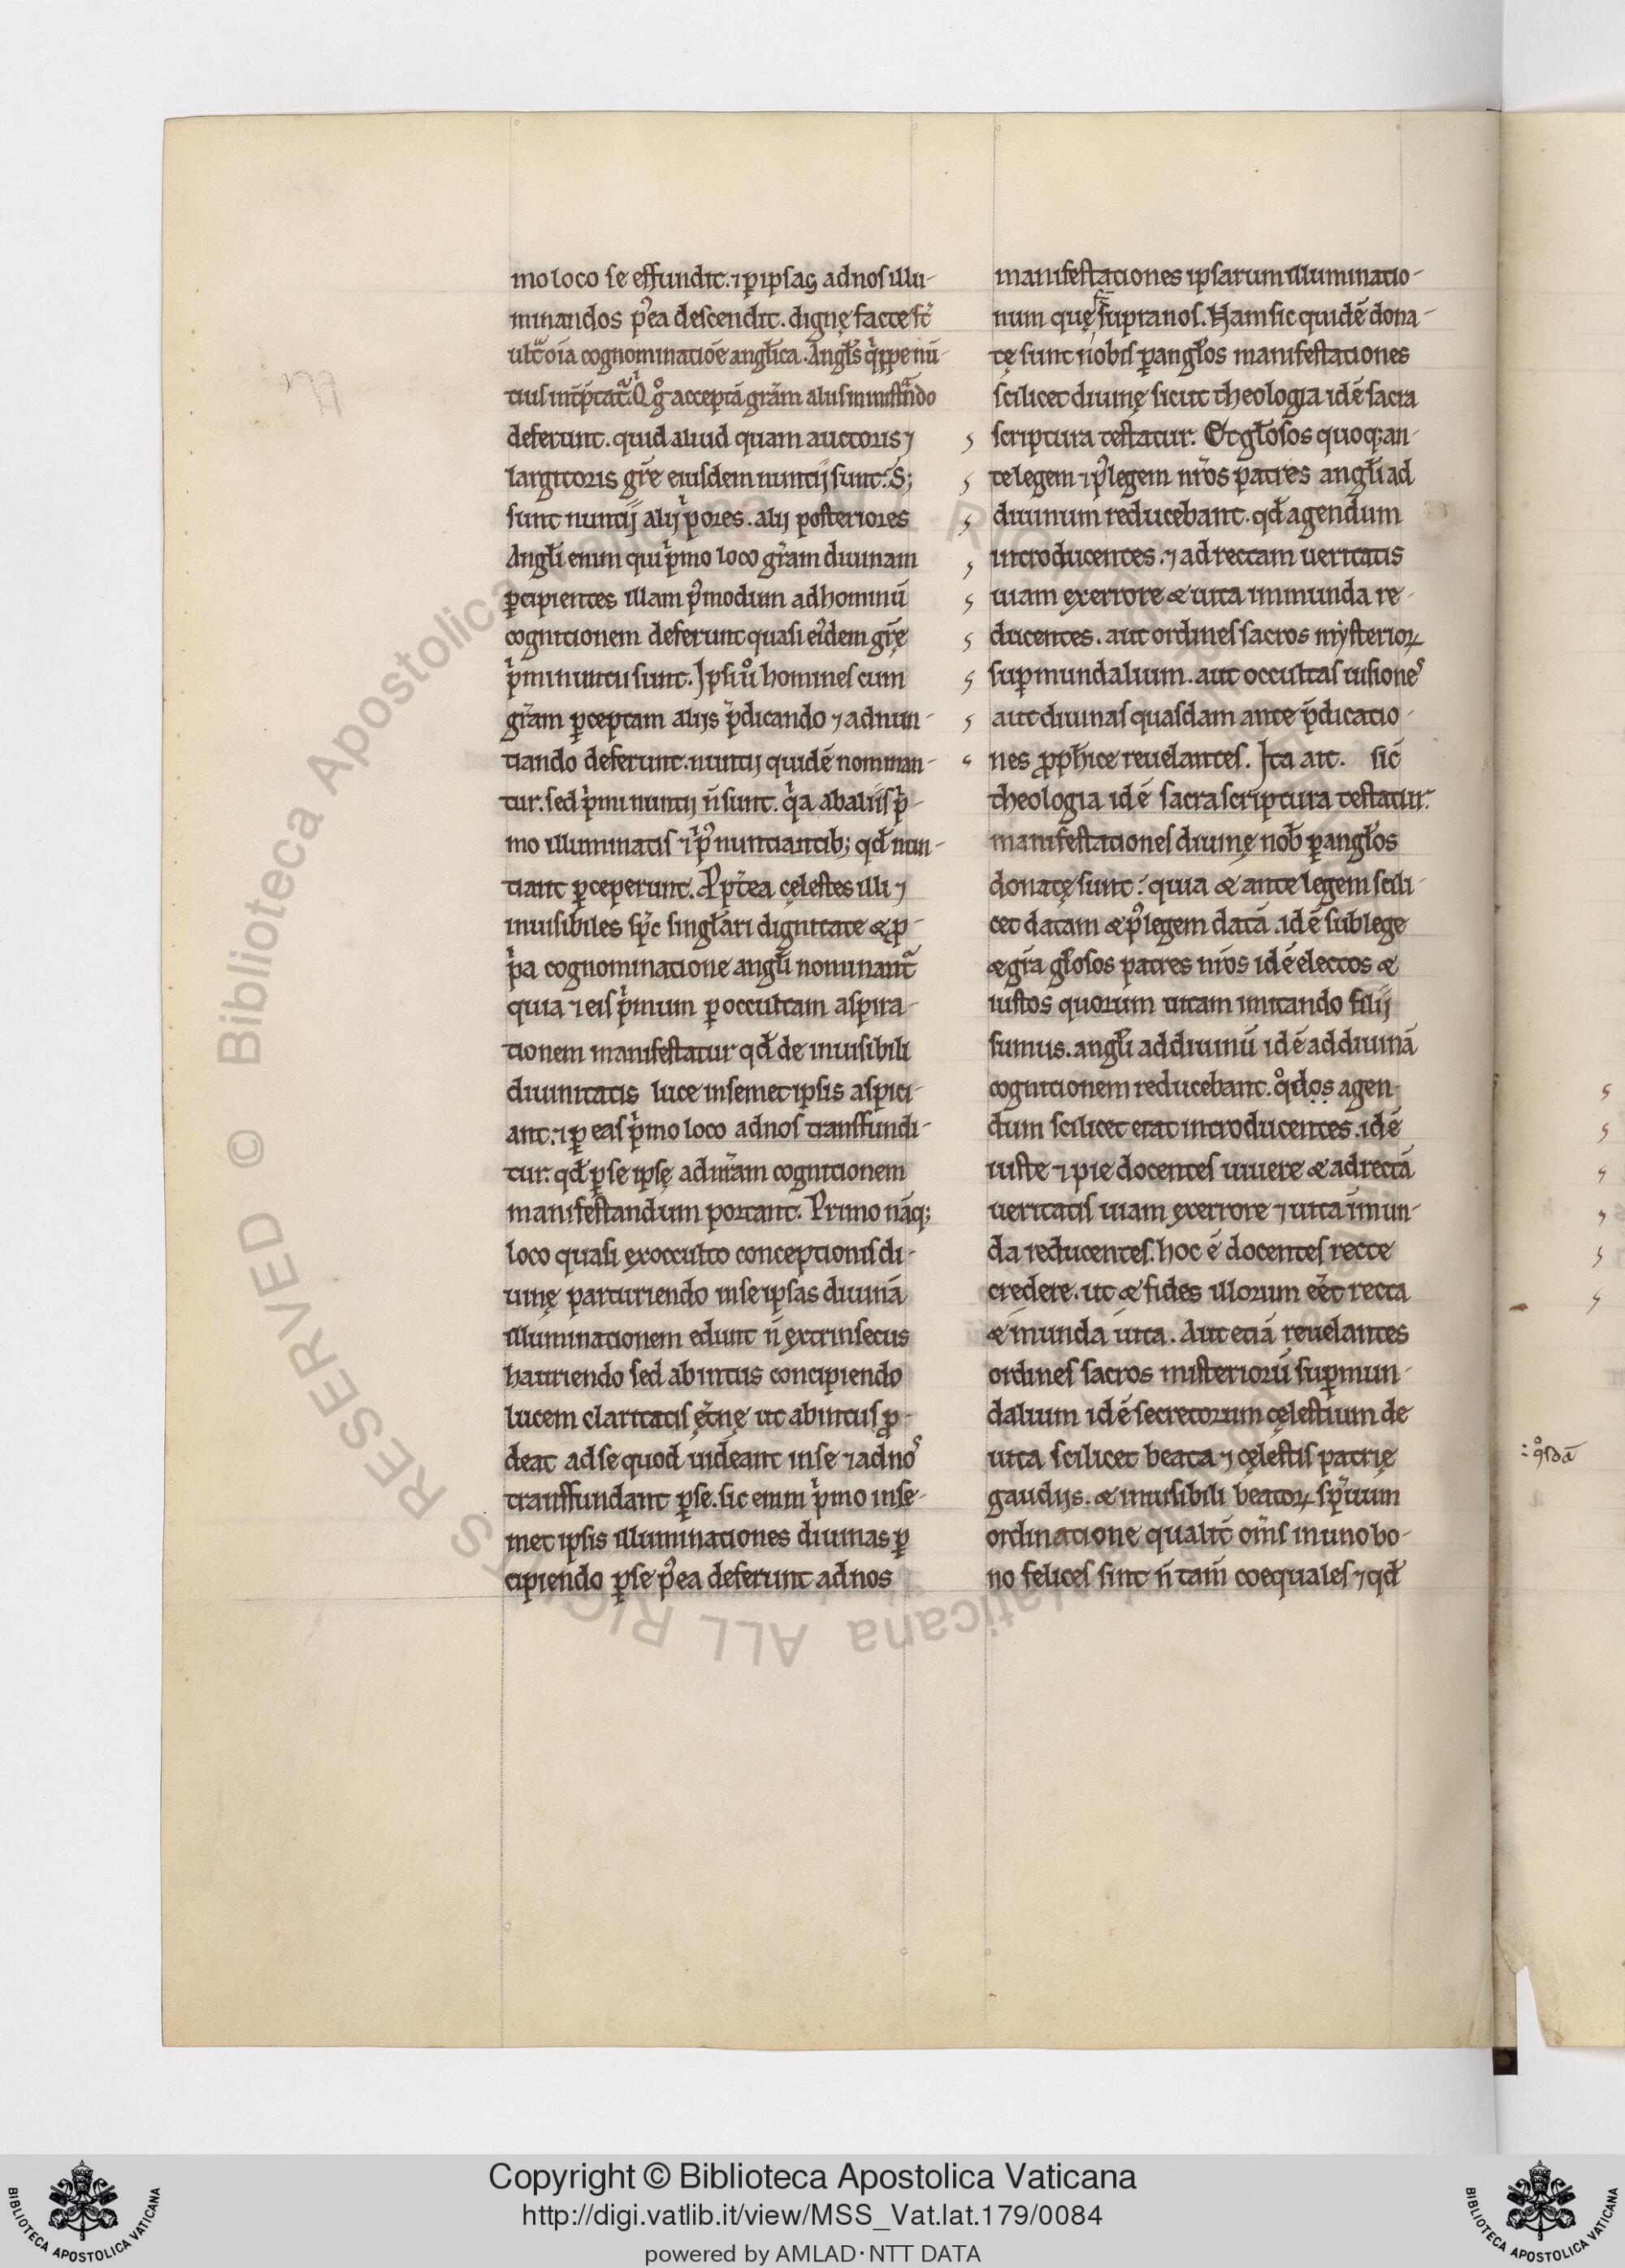 mo loco se effundit. ⁊ ꝑ ipsas ad nos illu-
minandos p̾ea descendit. dignę factę st̄
ult̄ oīa cognominatiōe angl̄ica. Angl̄s q̍ppe nū-
tius int̄p̄tat᷑. Q̍ g̊ acceptā gr̄am aliis ministrādo
deferunt. quid aliud quam auctoris ⁊
largitoris gr̄e eiusdem nuntij sunt. S;
sunt nuntij alij p̍ores. alij posteriores
Angl̄i enim qui p̍mo loco gr̄am diuinam
ꝑcipientes illam p̾modum ad hominū
cognitionem deferunt quasi ei̾dem gr̄ę
p̍mi nuntii sunt. Ipsi ů homines cum
gr̄am ꝑceptam alijs p̄dicando ⁊ adnun-
tiando deferunt. nuntij quidē nominan-
tur. sed p̍mi nuntij n̄ sunt. q̍a ab aliis p̍-
mo illuminatis ⁊ p̍us nuntiantib; qd̄ nun-
tiant ꝑceperunt. Ꝓpt̄ea cęlestes illi ⁊
inuisibiles sp̄c singl̄ari dignitate & ꝓ-
p̍a cognominatione angl̄i nominant᷑
quia ⁊ eis p̍mum ꝑ occultam aspira-
tionem manifestatur qd̄ de inuisibili
diuinitatis luce in semet ipsis aspici-
ant. ⁊ ꝑ eas p̍mo loco ad nos transfundi-
tur. qd̄ ꝑ se ipsę ad nr̄am cognitionem
manifestandum portant. Primo nāq;
loco quasi ex occulto conceptionis di-
uinę parturiendo in se ipsas diuinā
illuminationem edunt n̄ extrinsecus
hauriendo sed ab intus concipiendo
lucem claritatis ęt̄nę ut ab intus ꝓ-
deat ad se quod uideant in se ⁊ ad nos
transfundant ꝑ se. sic enim p̍mo in se-
met ipsis illuminationes diuinas ꝑ
cipiendo ꝑ se p̾ea deferunt ad nos
manifestationes ipsarum illuminatio-
num quę st̄ supra nos. Nam sic quidē dona-
tę sunt nobis ꝑ angl̄os manifestationes
scilicet diuinę sicut theologia idē sacra
scriptura testatur. Et gl̄osos quoq; an-
te legem ⁊ p̾ legem nr̄os patres angl̄i ad
diuinum reducebant. qd̄ agendum
introducentes. ⁊ ad rectam ueritatis
uiam ex errore & uita immunda re-
ducentes. aut ordines sacros mysterioꝝ
suꝑmundalium. aut occultas uisiones
aut diuinas quasdam ante p̄dicatio-
nes ꝓph̄ice reuelantes. Ita ait. sic̄
theologia idē sacra scriptura testatur.
manifestationes diuinę nob̄ ꝑ angl̄os
donatę sunt: quia & ante legem scili-
cet datam & p̾ legem datā. idē sub lege
& gr̄a gl̄osos patres nr̄os idē electos &
iustos quorum uitam imitando filij
sumus. angl̄i ad diuinū idē ad diuinā
cognitionem reducebant. q̊dọṣ agen-
dum scilicet erat introducentes. idē
iuste ⁊ pie docentes uiuere & ad rectā
ueritatis uiam ex errore ⁊ uita īmun-
da reducentes. hoc ē docentes recte
credere. ut & fides illorum eēt recta
& munda uita. Aut etiā reuelantes
ordines sacros misteriorū suꝑmun-
dalium idē secretorum cęlestium de
uita scilicet beata ⁊ cęlestis patrię
gaudijs. & inuisibili beatoꝝ sp̄ituum
ordinatione qualit̄ om̄s in uno bo-
no felices sint n̄ tam̄ coequales ⁊ qd̄
Copyright © Biblioteca Apostolica Vaticana
http://digi.vatlib.it/view/MSS_Vat.lat.179/0084
powered by AMLAD·NTT DATA
BIBLIOTECA APOSTOLICA VATICANA
BIBLIOTECA APOSTOLICA VATICANA
© Biblioteca Apostolica Vaticana ALL RIGHTS RESERVED